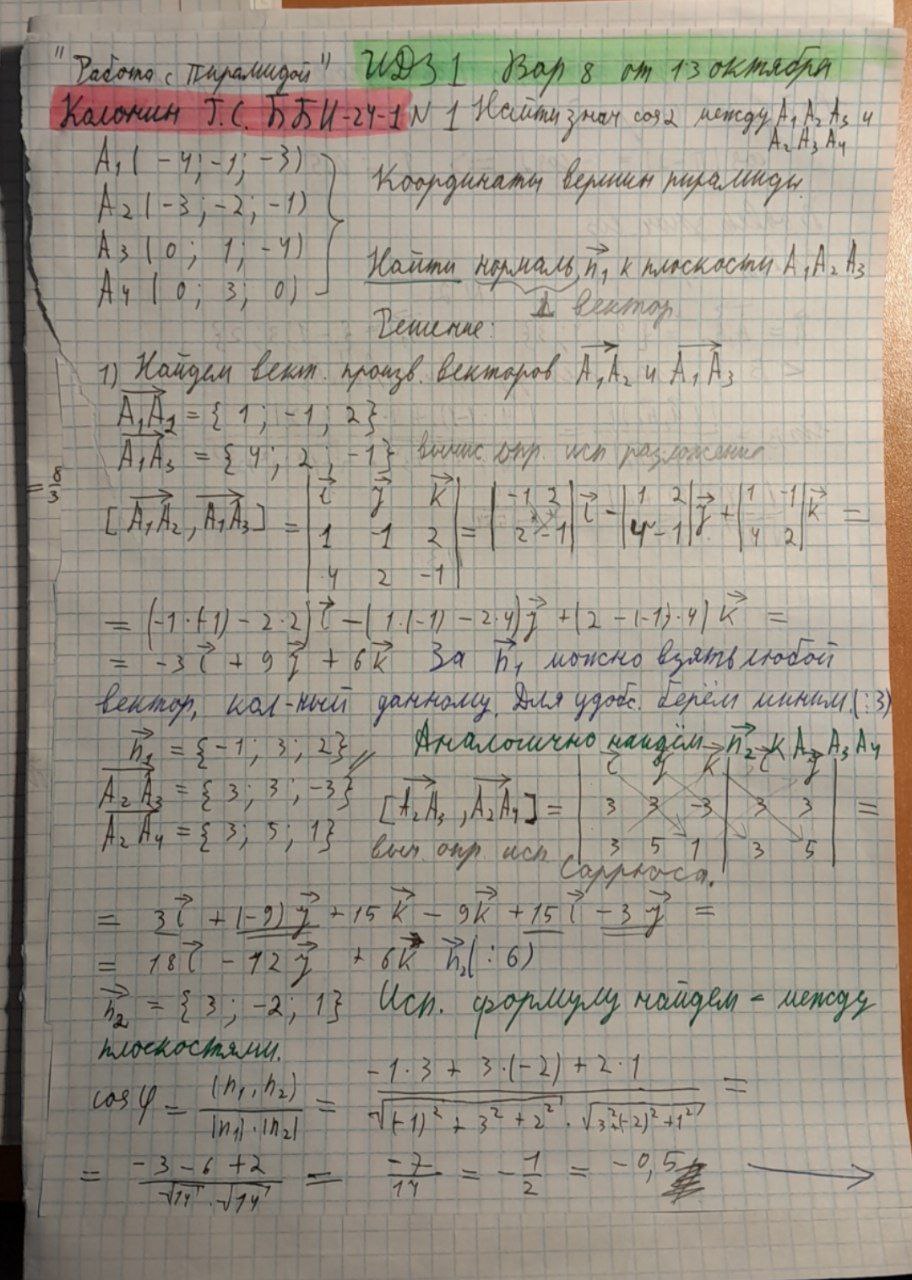 "Работа с Пирамидой" ИДЗ 1 Вар 8 от 13 октября
Калонин Г.С. ББИ-24-1 N 1 Найти знач cosα между A₁A₂A₃ и
A₂A₃A₄
A₁(-4;-1;-3)
A₂(-3;-2;-1)
A₃(0;1;-4)
A₄(0;3;0)
Координаты вершин пирамиды.
Найти нормаль n⃗₁ к плоскости A₁A₂A₃
⊥ вектор
Решение:
1) Найдем вект. произв. векторов A₁A₂ и A₁A₃
A₁A₂ = {1; -1; 2}
A₁A₃ = {4; 2; -1} вычис. опр. исп разложение
= 8/3
[A₁A₂, A₁A₃] = |i⃗ j⃗ k⃗; 1 -1 2; 4 2 -1| = |-1 2; 2 -1| i⃗ - |1 2; 4 -1| j⃗ + |1 -1; 4 2| k⃗ =
= (-1·(-1) - 2·2) i⃗ - (1·(-1) - 2·4) j⃗ + (2 - (-1)·4) k⃗ =
= -3i⃗ + 9j⃗ + 6k⃗ За n⃗₁ можно взять любой
вектор, кол-ный данному. Для удобс. берём миним. (:3)
n⃗₁ = {-1; 3; 2} // Аналогично найдём n⃗₂ к A₂A₃A₄
A₂A₃ = {3; 3; -3}
A₂A₄ = {3; 5; 1}
[A₂A₃, A₂A₄] = |i⃗ j⃗ k⃗; 3 3 -3; 3 5 1| i⃗ j⃗; 3 3; 3 5| =
выч опр исп Саррюса.
= 3i⃗ + (-9)j⃗ + 15k⃗ - 9k⃗ + 15i⃗ - 3j⃗ =
= 18i⃗ - 12j⃗ + 6k⃗ n⃗₂(:6)
n⃗₂ = {3; -2; 1} Исп. формулу найдем - между
плоскостями.
cos φ = (n₁, n₂)/(|n₁|·|n₂|) = (-1·3 + 3·(-2) + 2·1)/(√((-1)² + 3² + 2²) · √(3²+(-2)²+1²)) =
= (-3 - 6 + 2)/(√14 · √14) = -7/14 = -1/2 = -0,5 →